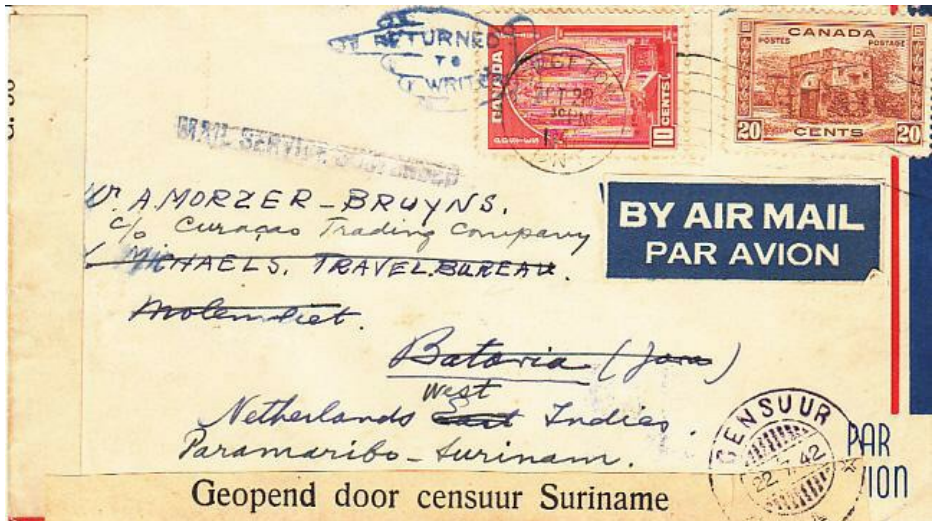 RETURNED
TO
WRITER
CANADA
10 CENTS
CANADA
POSTES POSTAGE
20 CENTS 20
MAIL SERVICE SUSPENDED
Mr. A MORZER-BRUYNS.
c/o Curaçao Trading Company
MICHAELS. TRAVEL.BUREAU.
Molenvliet.
Batavia (Java)
West
Netherlands East Indies.
Paramaribo-Surinam.
BY AIR MAIL
PAR AVION
CENSUUR
22 42
PAR
VION
Geopend door censuur Suriname